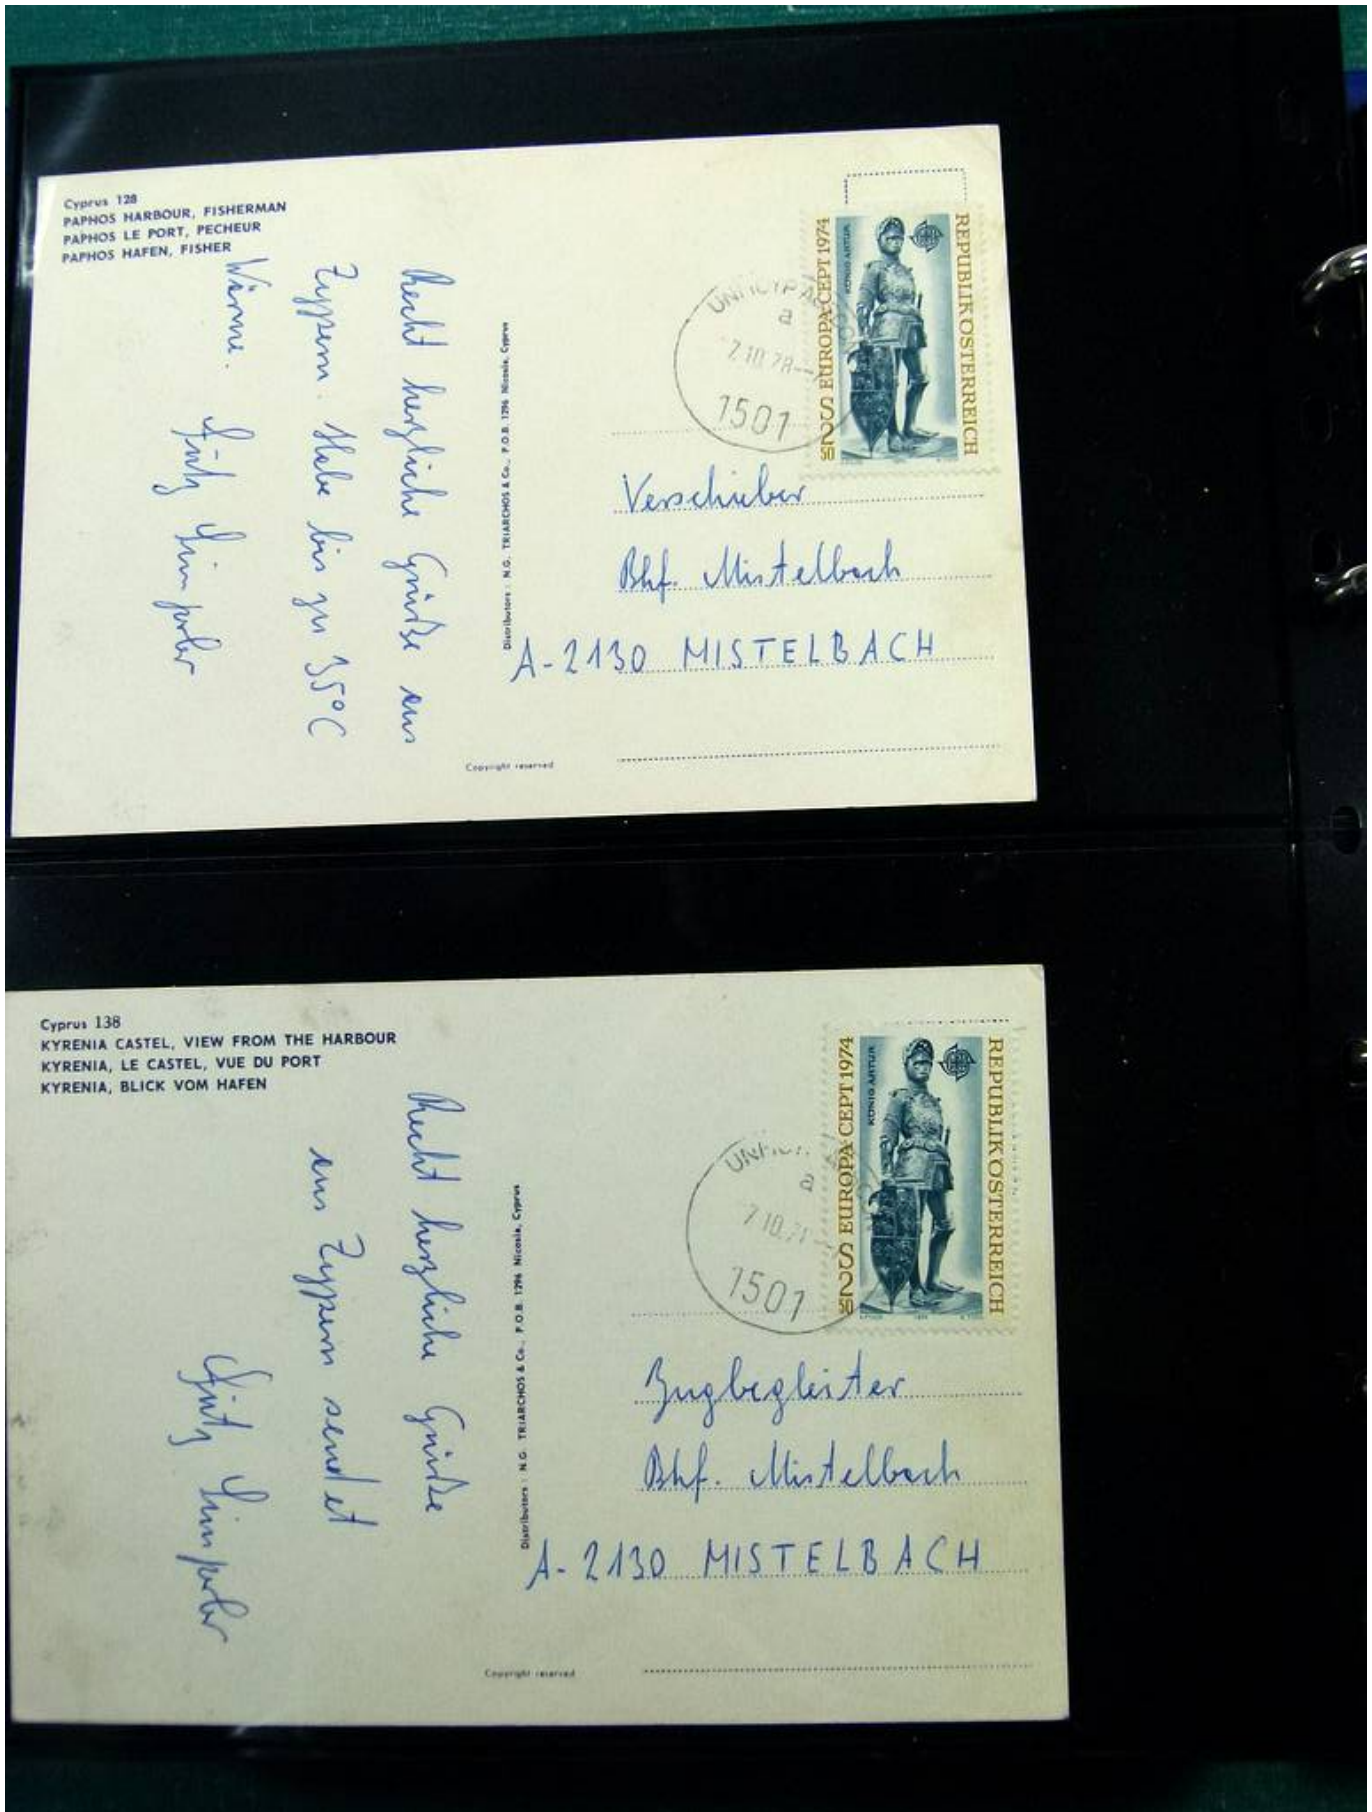 Cyprus 128
PAPHOS HARBOUR, FISHERMAN
PAPHOS LE PORT, PECHEUR
PAPHOS HAFEN, FISHER
Recht herzliche Grüße aus
Zypern. Habe bis zu 35°C
Wärme.
Distributors : N.G. TRIARCHOS & Co., P.O.B. 1296 Nicosia, Cyprus
Copyright reserved
a
7.10.78
1501
REPUBLIK OSTERREICH
KÖNIG ARTUR
S2 50 EUROPA CEPT 1974
Verschieber
Bhf. Mistelbach
A-2130 MISTELBACH
Cyprus 138
KYRENIA CASTEL, VIEW FROM THE HARBOUR
KYRENIA, LE CASTEL, VUE DU PORT
KYRENIA, BLICK VOM HAFEN
Recht herzliche Grüße
aus Zypern sendet
Distributors : N.G. TRIARCHOS & Co., P.O.B. 1296 Nicosia, Cyprus
Copyright reserved
a
1501
REPUBLIK OSTERREICH
KÖNIG ARTUR
S2 50 EUROPA CEPT 1974
Zugbegleiter
Bhf. Mistelbach
A-2130 MISTELBACH